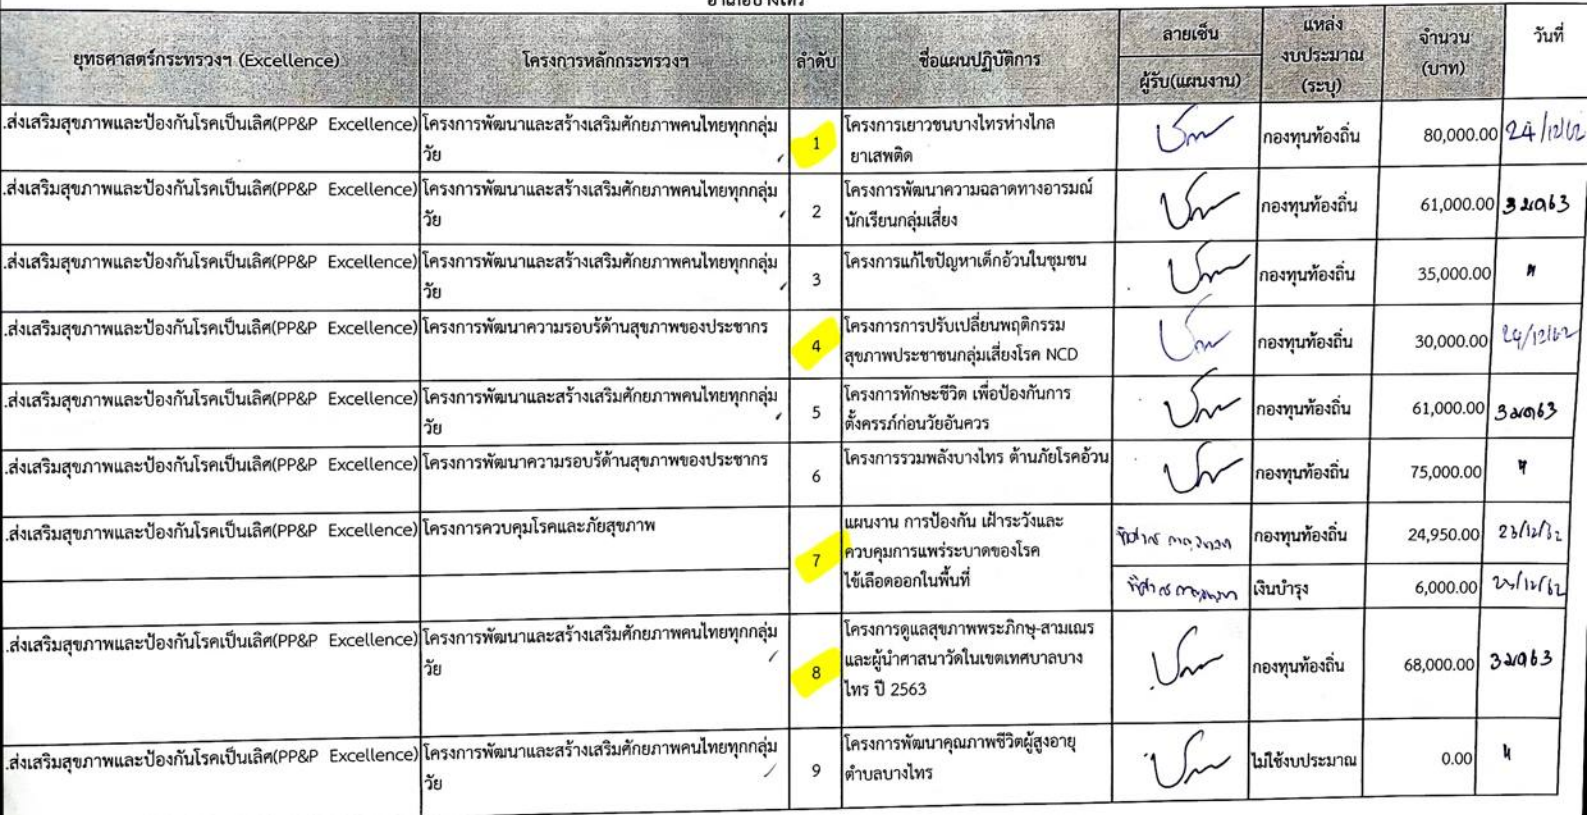 อำเภอบางไทร
ยุทธศาสตร์กระทรวงฯ (Excellence) โครงการหลักกระทรวงฯ ลำดับ ชื่อแผนปฏิบัติการ ลายเซ็น ผู้รับ(แผนงาน) แหล่ง งบประมาณ (ระบุ) จำนวน (บาท) วันที่
.ส่งเสริมสุขภาพและป้องกันโรคเป็นเลิศ(PP&P Excellence) โครงการพัฒนาและสร้างเสริมศักยภาพคนไทยทุกกลุ่ม 1 โครงการเยาวชนบางไทรห่างไกล กองทุนท้องถิ่น 80,000.00 24/12/62
วัย ยาเสพติด
.ส่งเสริมสุขภาพและป้องกันโรคเป็นเลิศ(PP&P Excellence) โครงการพัฒนาและสร้างเสริมศักยภาพคนไทยทุกกลุ่ม 2 โครงการพัฒนาความฉลาดทางอารมณ์ กองทุนท้องถิ่น 61,000.00 3 มค63
วัย นักเรียนกลุ่มเสี่ยง
.ส่งเสริมสุขภาพและป้องกันโรคเป็นเลิศ(PP&P Excellence) โครงการพัฒนาและสร้างเสริมศักยภาพคนไทยทุกกลุ่ม 3 โครงการแก้ไขปัญหาเด็กอ้วนในชุมชน กองทุนท้องถิ่น 35,000.00 "
วัย
.ส่งเสริมสุขภาพและป้องกันโรคเป็นเลิศ(PP&P Excellence) โครงการพัฒนาความรอบรู้ด้านสุขภาพของประชากร 4 โครงการการปรับเปลี่ยนพฤติกรรม กองทุนท้องถิ่น 30,000.00 24/12/62
สุขภาพประชาชนกลุ่มเสี่ยงโรค NCD
.ส่งเสริมสุขภาพและป้องกันโรคเป็นเลิศ(PP&P Excellence) โครงการพัฒนาและสร้างเสริมศักยภาพคนไทยทุกกลุ่ม 5 โครงการทักษะชีวิต เพื่อป้องกันการ กองทุนท้องถิ่น 61,000.00 3 มค63
วัย ตั้งครรภ์ก่อนวัยอันควร
.ส่งเสริมสุขภาพและป้องกันโรคเป็นเลิศ(PP&P Excellence) โครงการพัฒนาความรอบรู้ด้านสุขภาพของประชากร 6 โครงการรวมพลังบางไทร ต้านภัยโรคอ้วน กองทุนท้องถิ่น 75,000.00 "
.ส่งเสริมสุขภาพและป้องกันโรคเป็นเลิศ(PP&P Excellence) โครงการควบคุมโรคและภัยสุขภาพ 7 แผนงาน การป้องกัน เฝ้าระวังและ กองทุนท้องถิ่น 24,950.00 23/12/62
ควบคุมการแพร่ระบาดของโรค
ไข้เลือดออกในพื้นที่ เงินบำรุง 6,000.00 23/12/62
.ส่งเสริมสุขภาพและป้องกันโรคเป็นเลิศ(PP&P Excellence) โครงการพัฒนาและสร้างเสริมศักยภาพคนไทยทุกกลุ่ม 8 โครงการดูแลสุขภาพพระภิกษุ-สามเณร กองทุนท้องถิ่น 68,000.00 3 มค63
วัย และผู้นำศาสนาวัดในเขตเทศบาลบาง
ไทร ปี 2563
.ส่งเสริมสุขภาพและป้องกันโรคเป็นเลิศ(PP&P Excellence) โครงการพัฒนาและสร้างเสริมศักยภาพคนไทยทุกกลุ่ม 9 โครงการพัฒนาคุณภาพชีวิตผู้สูงอายุ ไม่ใช้งบประมาณ 0.00 "
วัย ตำบลบางไทร